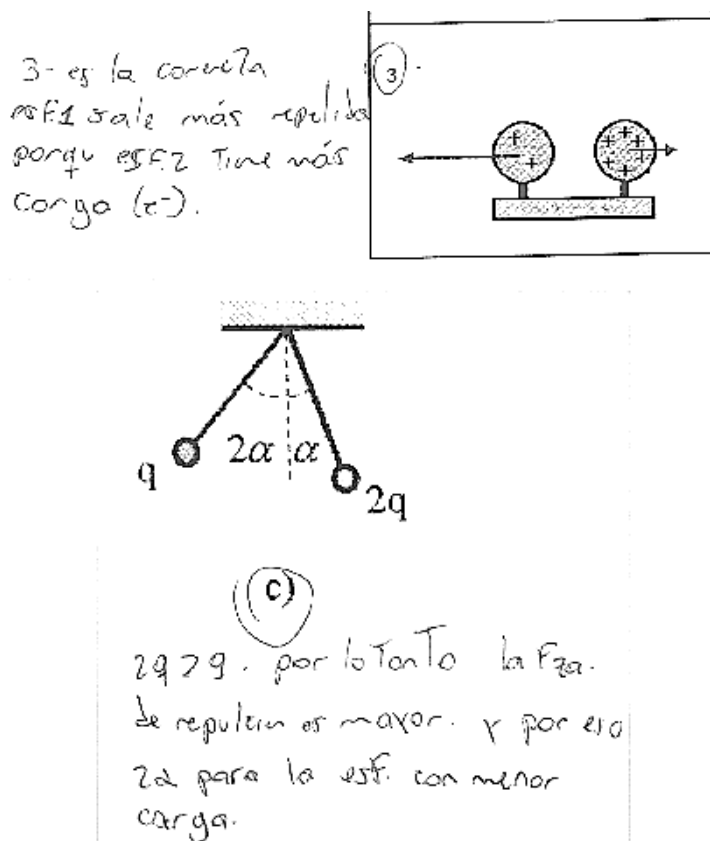 3- es la correcta
esf.1 sale más repelida
porqu esf.2 Tiene más
+
carga (e-).
3
+ + + + + + + +
2α α
q
2q
c)
2q > q. por lo TanTo la Fza.
de repulcion es mayor. y por eso
2α para la esf. con menor
carga.